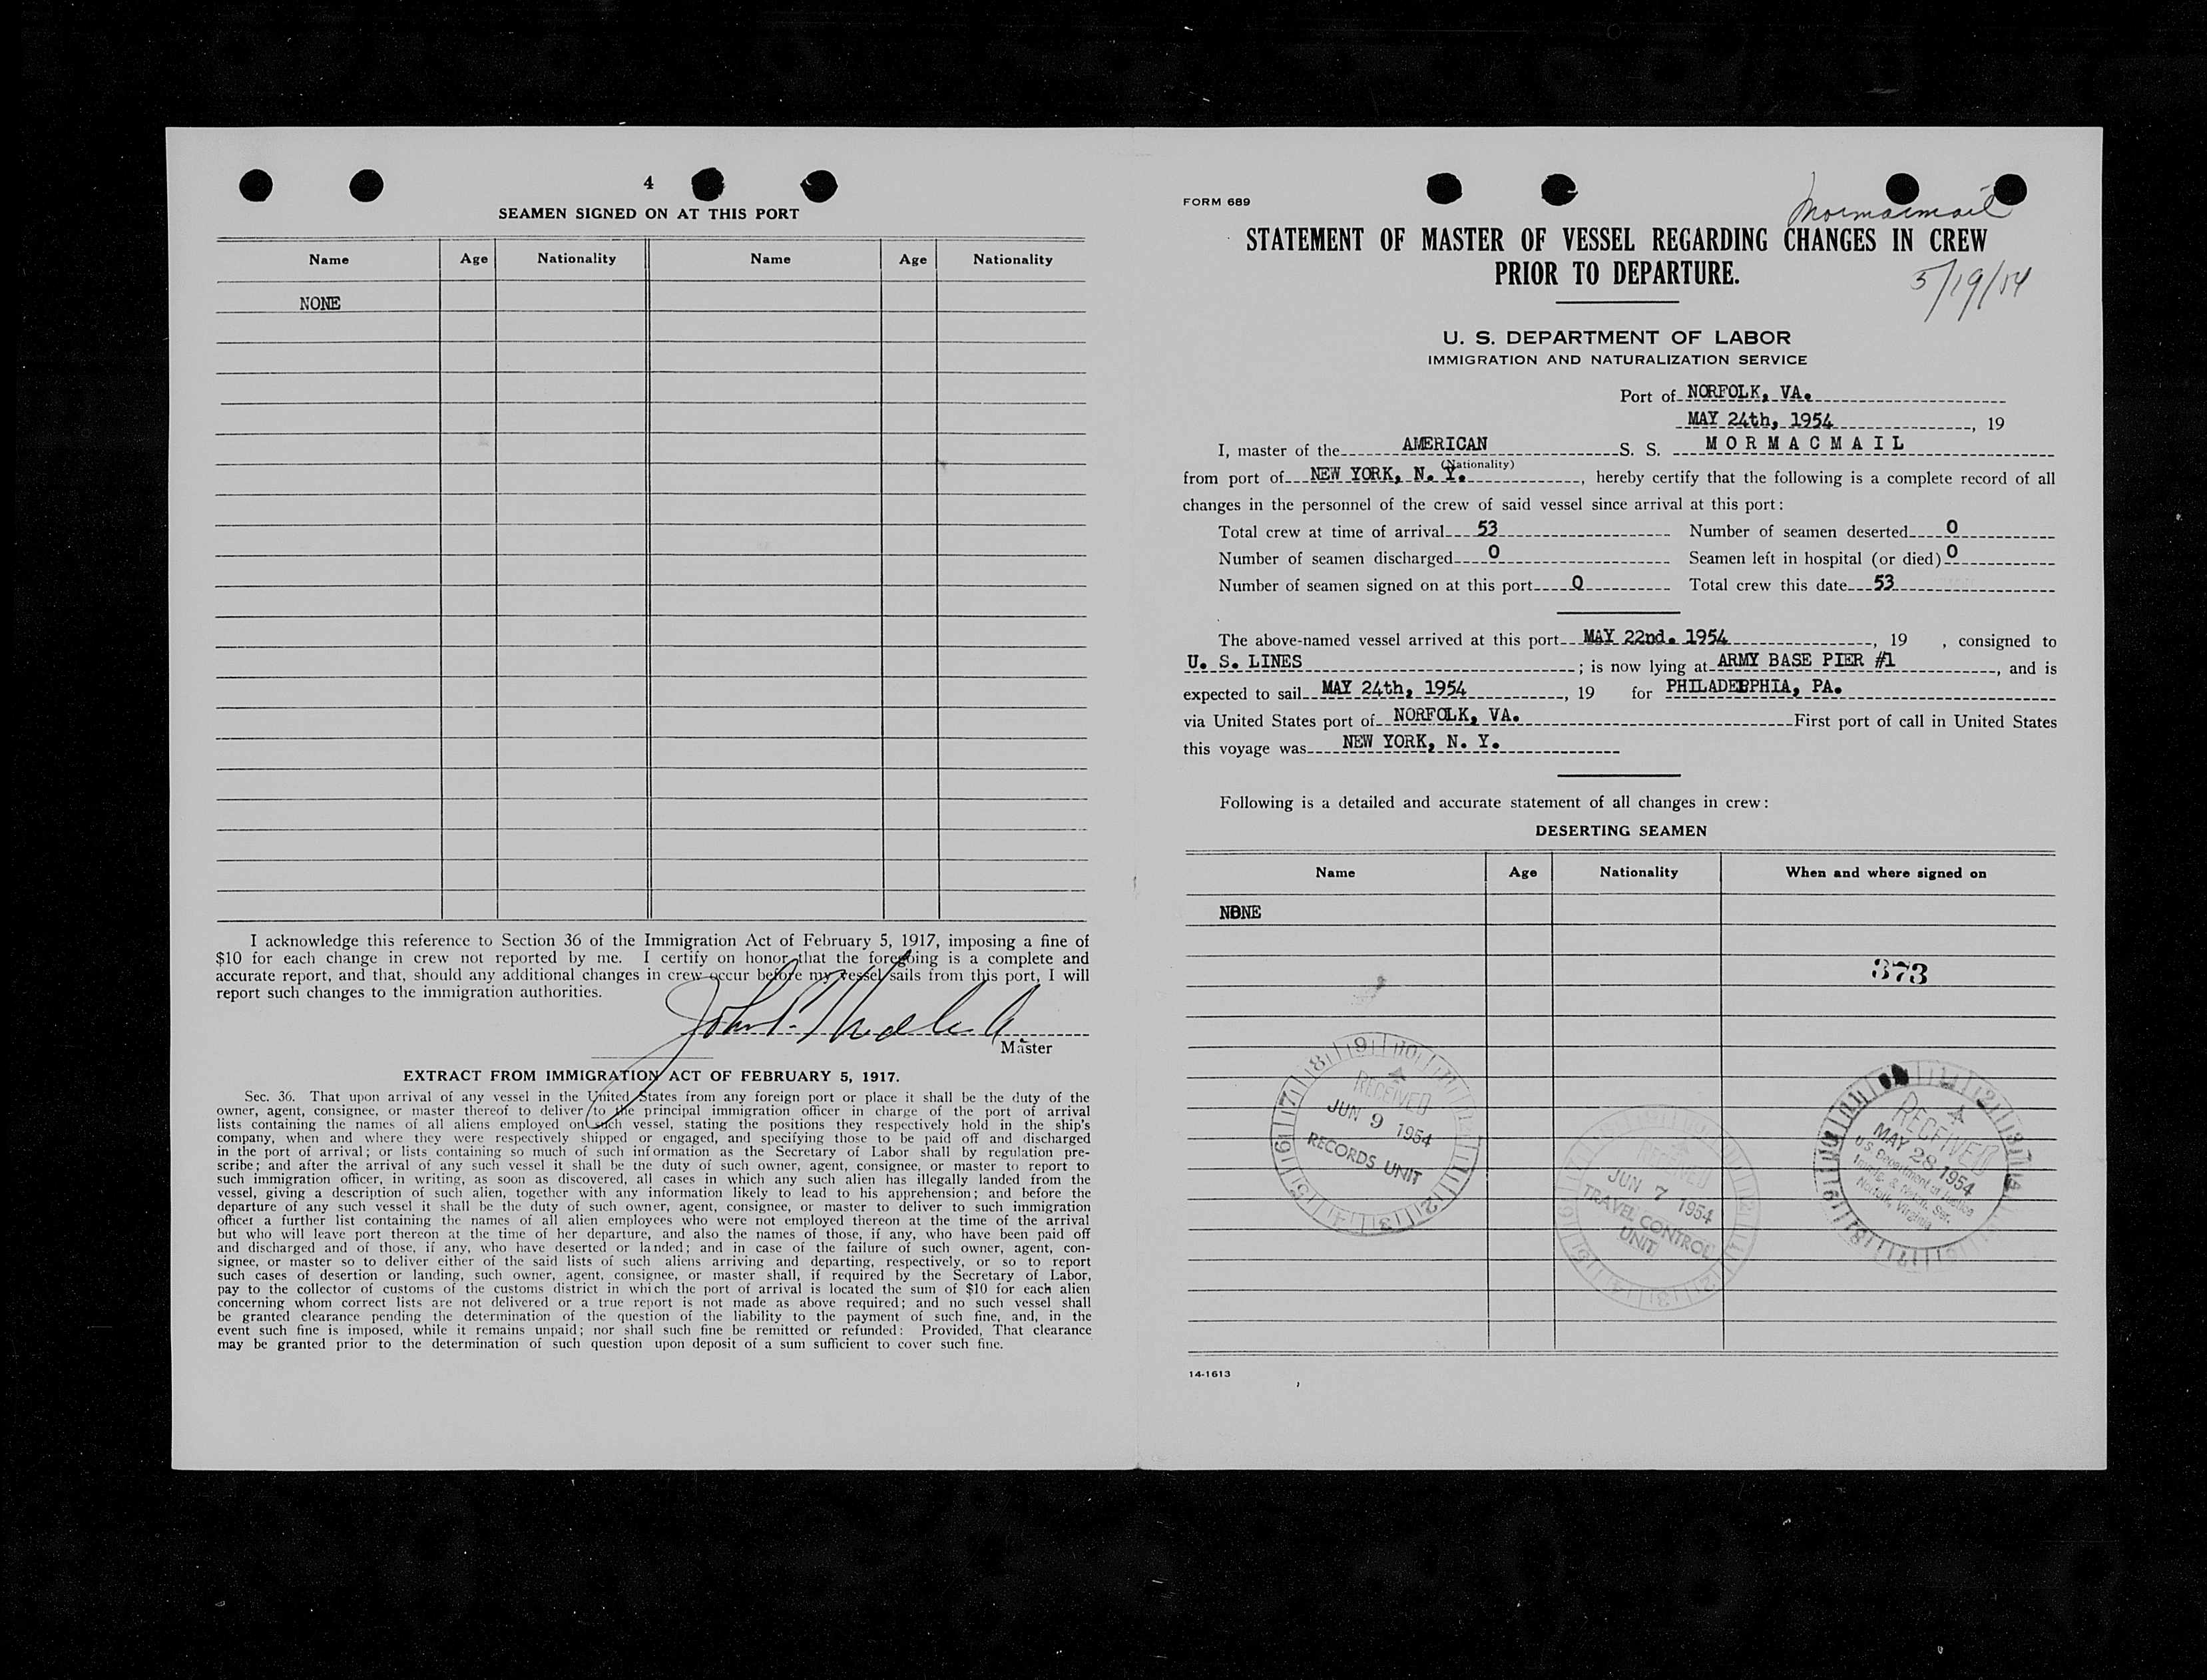 4
SEAMEN SIGNED ON AT THIS PORT
Name Age Nationality Name Age Nationality
NONE
I acknowledge this reference to Section 36 of the Immigration Act of February 5, 1917, imposing a fine of
$10 for each change in crew not reported by me. I certify on honor that the foregoing is a complete and
accurate report, and that, should any additional changes in crew occur before my vessel sails from this port, I will
report such changes to the immigration authorities.
John
Master
EXTRACT FROM IMMIGRATION ACT OF FEBRUARY 5, 1917.
Sec. 36. That upon arrival of any vessel in the United States from any foreign port or place it shall be the duty of the
owner, agent, consignee, or master thereof to deliver to the principal immigration officer in charge of the port of arrival
lists containing the names of all aliens employed on such vessel, stating the positions they respectively hold in the ship's
company, when and where they were respectively shipped or engaged, and specifying those to be paid off and discharged
in the port of arrival; or lists containing so much of such information as the Secretary of Labor shall by regulation pre-
scribe; and after the arrival of any such vessel it shall be the duty of such owner, agent, consignee, or master to report to
such immigration officer, in writing, as soon as discovered, all cases in which any such alien has illegally landed from the
vessel, giving a description of such alien, together with any information likely to lead to his apprehension; and before the
departure of any such vessel it shall be the duty of such owner, agent, consignee, or master to deliver to such immigration
officer a further list containing the names of all alien employees who were not employed thereon at the time of the arrival
but who will leave port thereon at the time of her departure, and also the names of those, if any, who have been paid off
and discharged and of those, if any, who have deserted or landed; and in case of the failure of such owner, agent, con-
signee, or master so to deliver either of the said lists of such aliens arriving and departing, respectively, or so to report
such cases of desertion or landing, such owner, agent, consignee, or master shall, if required by the Secretary of Labor,
pay to the collector of customs of the customs district in which the port of arrival is located the sum of $10 for each alien
concerning whom correct lists are not delivered or a true report is not made as above required; and no such vessel shall
be granted clearance pending the determination of the question of the liability to the payment of such fine, and, in the
event such fine is imposed, while it remains unpaid; nor shall such fine be remitted or refunded: Provided, That clearance
may be granted prior to the determination of such question upon deposit of a sum sufficient to cover such fine.
FORM 689
Mormacmail
STATEMENT OF MASTER OF VESSEL REGARDING CHANGES IN CREW
PRIOR TO DEPARTURE.
5/19/54
U. S. DEPARTMENT OF LABOR
IMMIGRATION AND NATURALIZATION SERVICE
Port of NORFOLK, VA.
MAY 24th, 1954, 19
I, master of the AMERICAN S. S. MORMACMAIL
(Nationality)
from port of NEW YORK, N. Y., hereby certify that the following is a complete record of all
changes in the personnel of the crew of said vessel since arrival at this port:
Total crew at time of arrival 53 Number of seamen deserted 0
Number of seamen discharged 0 Seamen left in hospital (or died) 0
Number of seamen signed on at this port 0 Total crew this date 53
The above-named vessel arrived at this port MAY 22nd. 1954, 19 , consigned to
U. S. LINES; is now lying at ARMY BASE PIER #1, and is
expected to sail MAY 24th, 1954, 19 for PHILADEPPHIA, PA.
via United States port of NORFOLK, VA. First port of call in United States
this voyage was NEW YORK, N. Y.
Following is a detailed and accurate statement of all changes in crew:
DESERTING SEAMEN
Name Age Nationality When and where signed on
NONE
373
RECEIVED
JUN 9 1954
RECORDS UNIT
RECEIVED
JUN 7 1954
TRAVEL CONTROL
UNIT
RECEIVED
MAY 28 1954
U.S. Department of Justice
Immig. & Natzn. Ser.
Norfolk, Virginia
14-1613